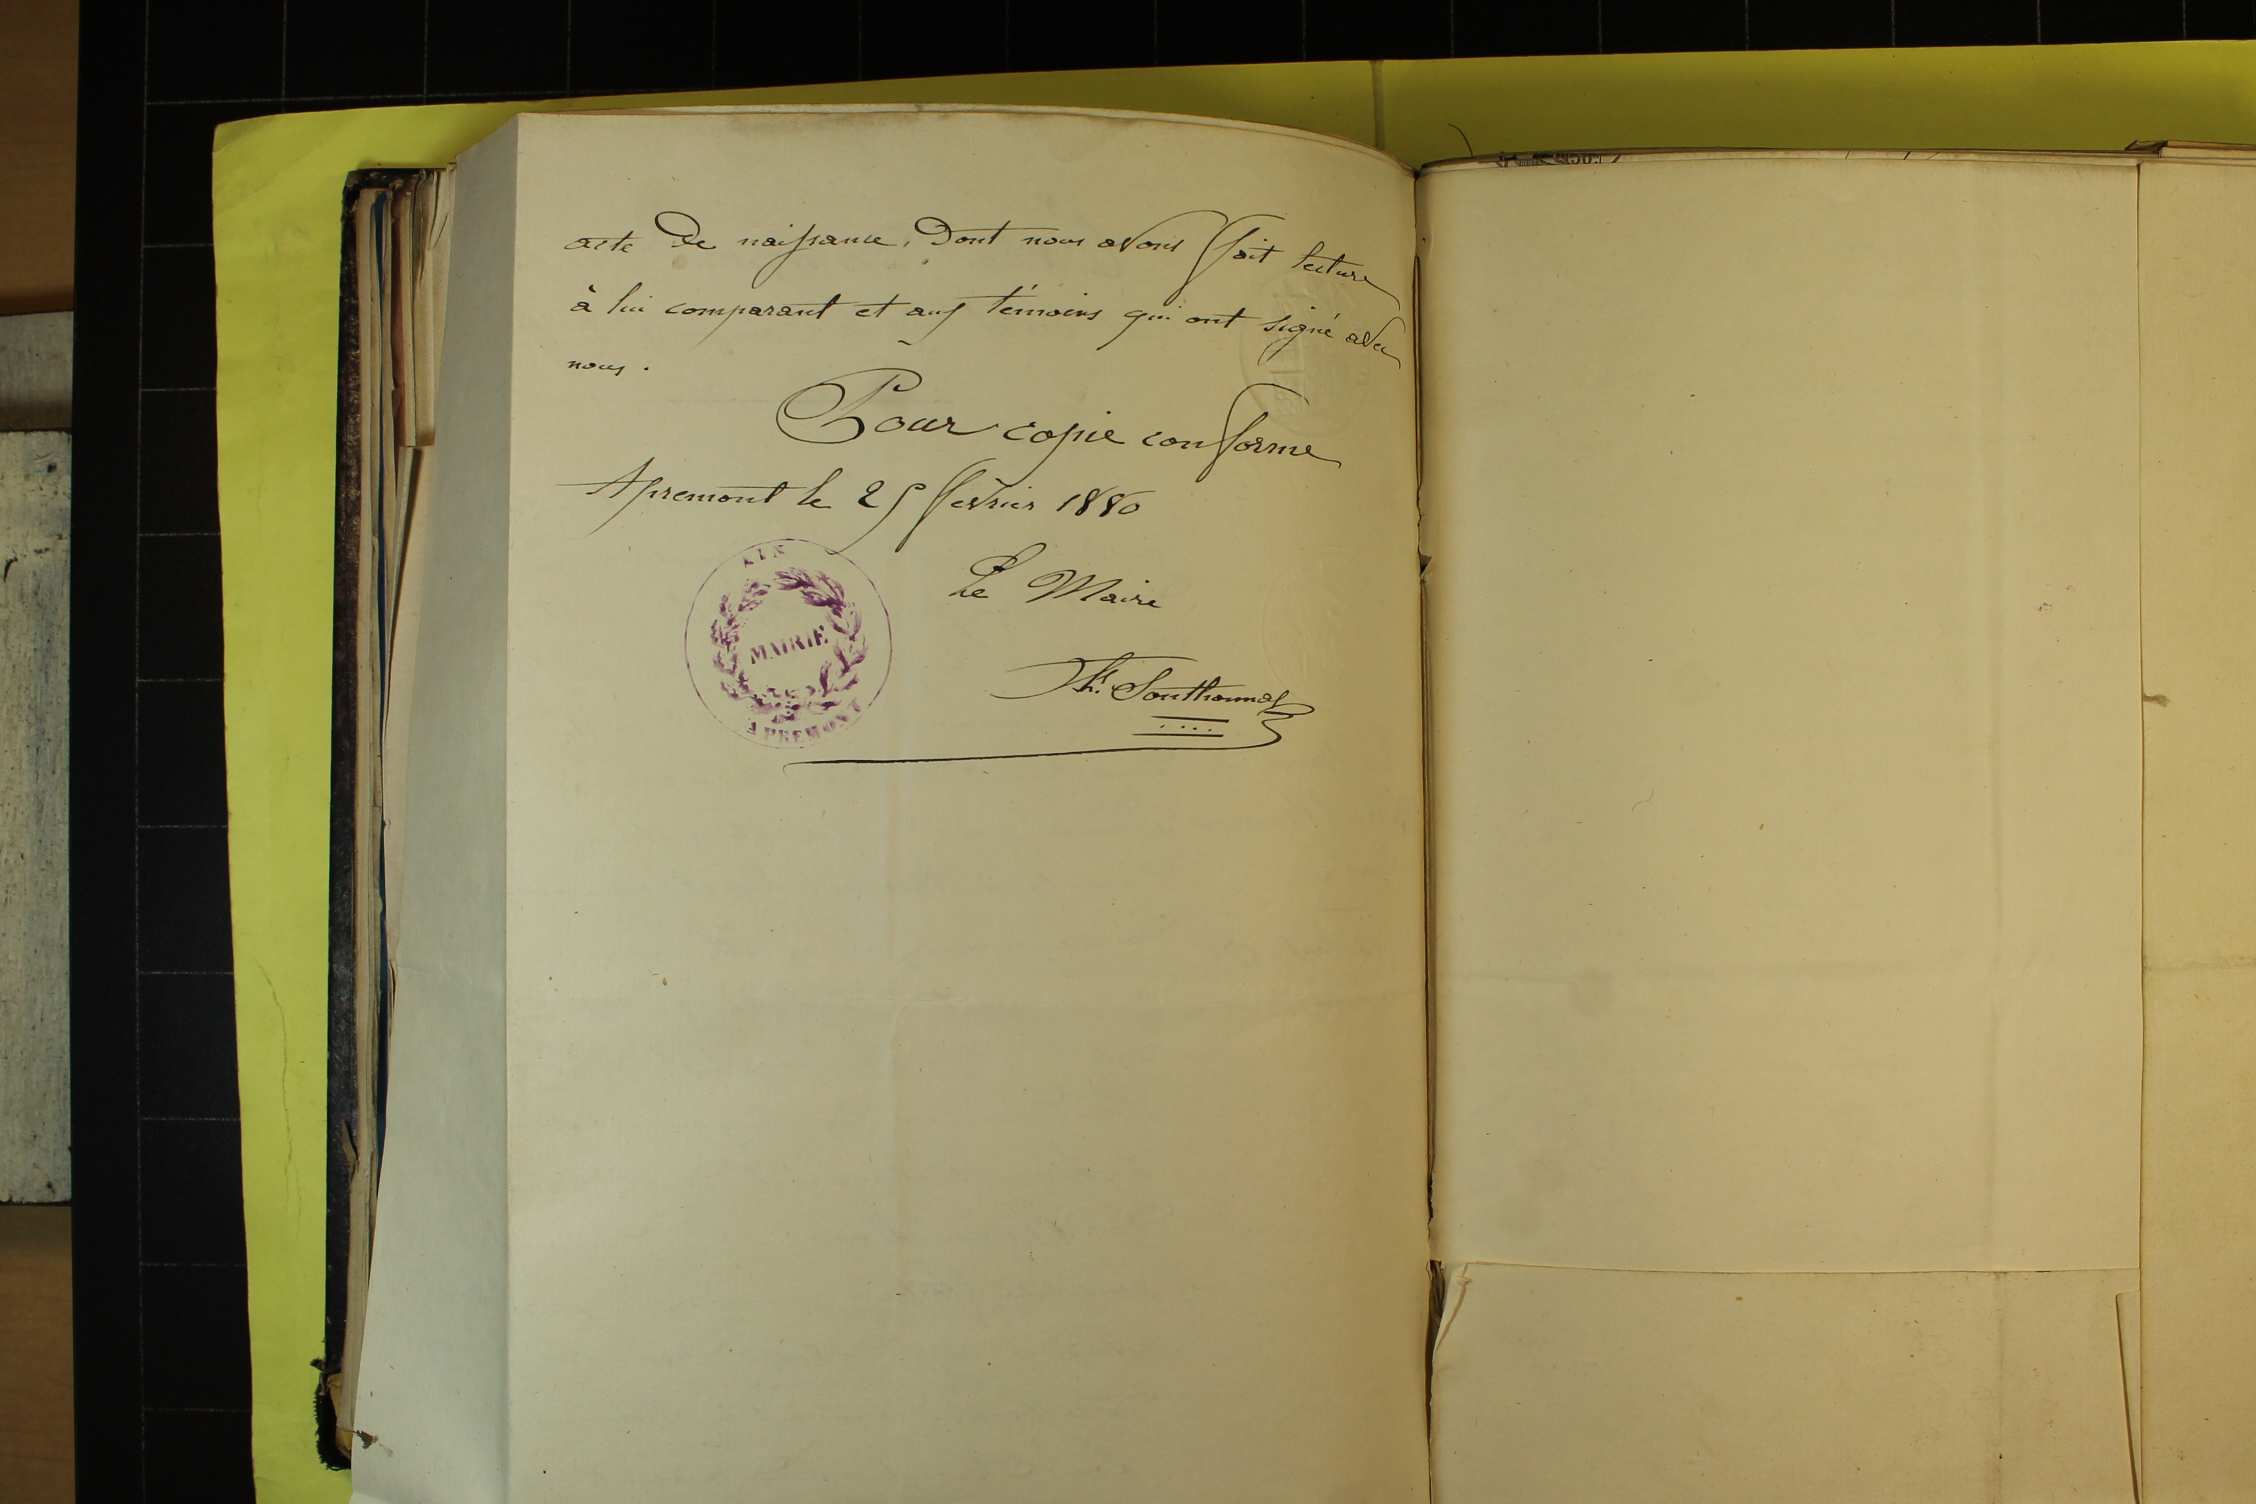 acte de naissance, dont nous avons fait lecture
à lui comparant et aux témoins qui ont signé avec
nous.
Pour copie conforme
Apremont le 25 février 1880
Le Maire
Southonnas
AIN
MAIRIE
APREMONT